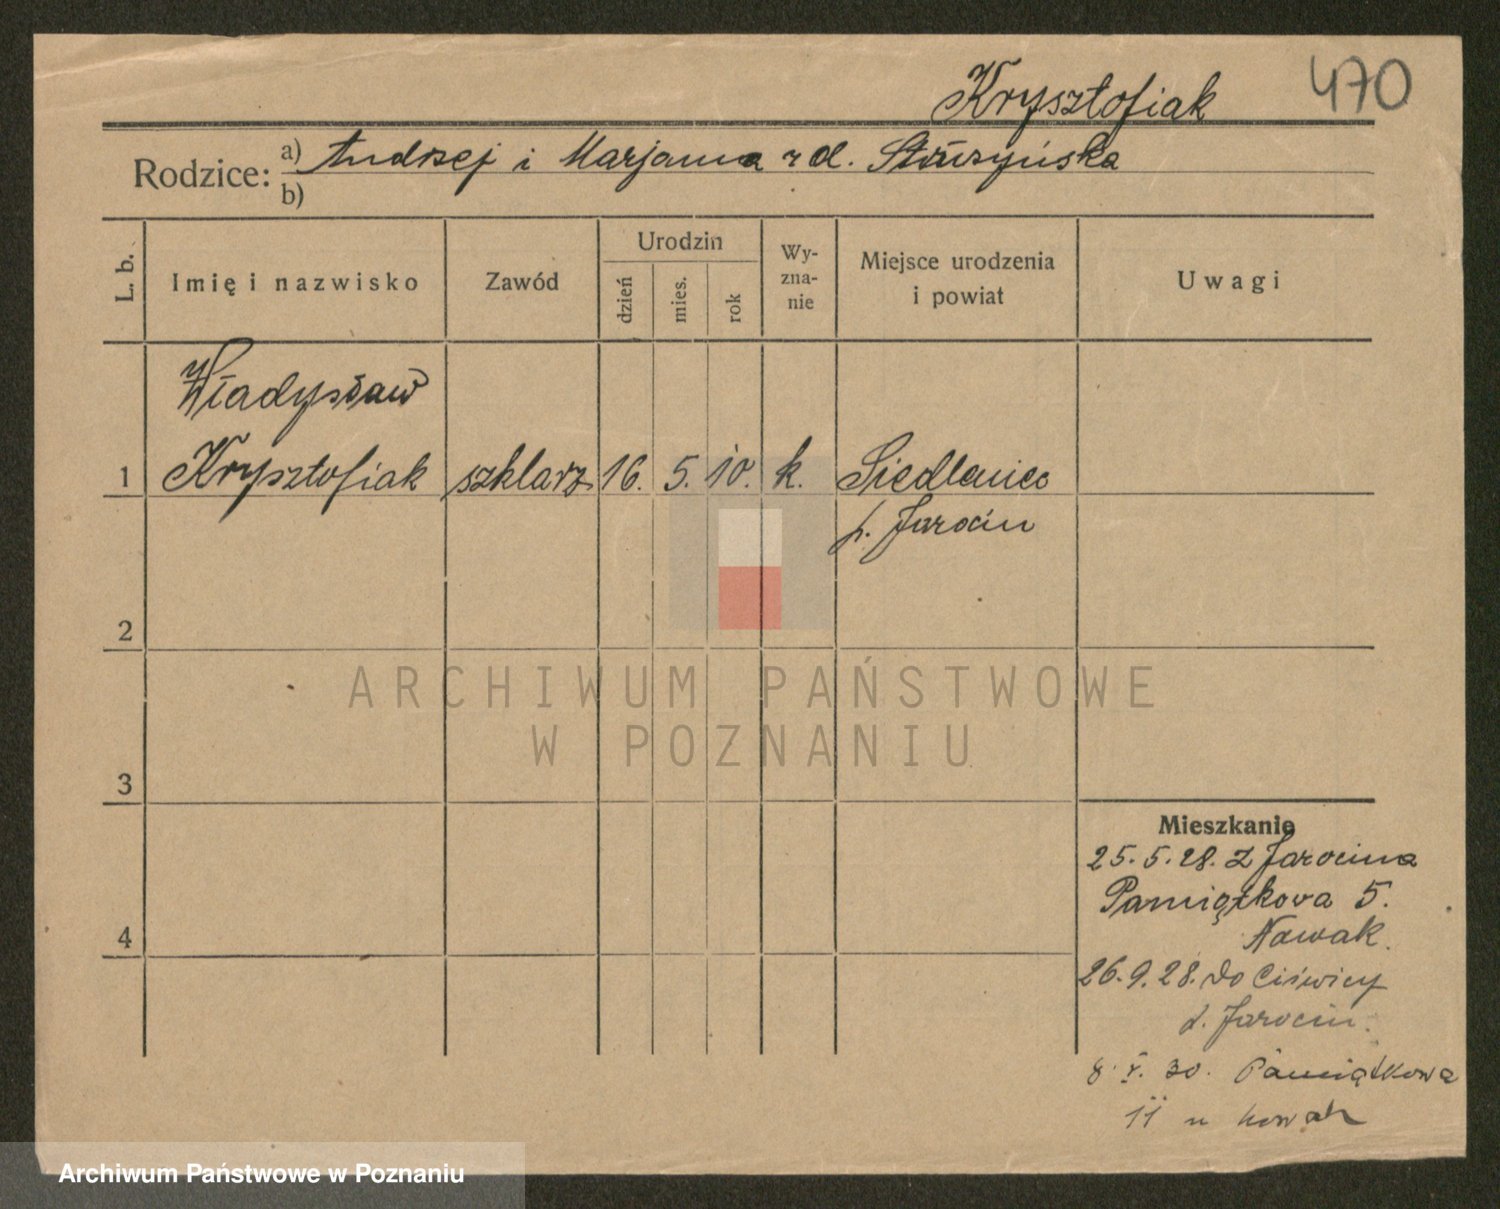 Krysztofiak 470
Rodzice: a) Andrzej i Marjanna rd. Struzyńska
b)
L. b. Imię i nazwisko Zawód Urodzin dzień mies. rok Wy-zna-nie Miejsce urodzenia i powiat Uwagi
Władysław
1 Krysztofiak szklarz 16. 5. 10. k. Siedlemiec
p. Jarocin
2
ARCHIWUM PAŃSTWOWE
W POZNANIU
3
Mieszkanie
25.5.28. z Jarocina
Pamiątkova 5.
Nowak.
4
26.9.28. do Ciświcy
p. Jarocin.
8. V. 30. Pamiątkowa
11 u Nowak
Archiwum Państwowe w Poznaniu